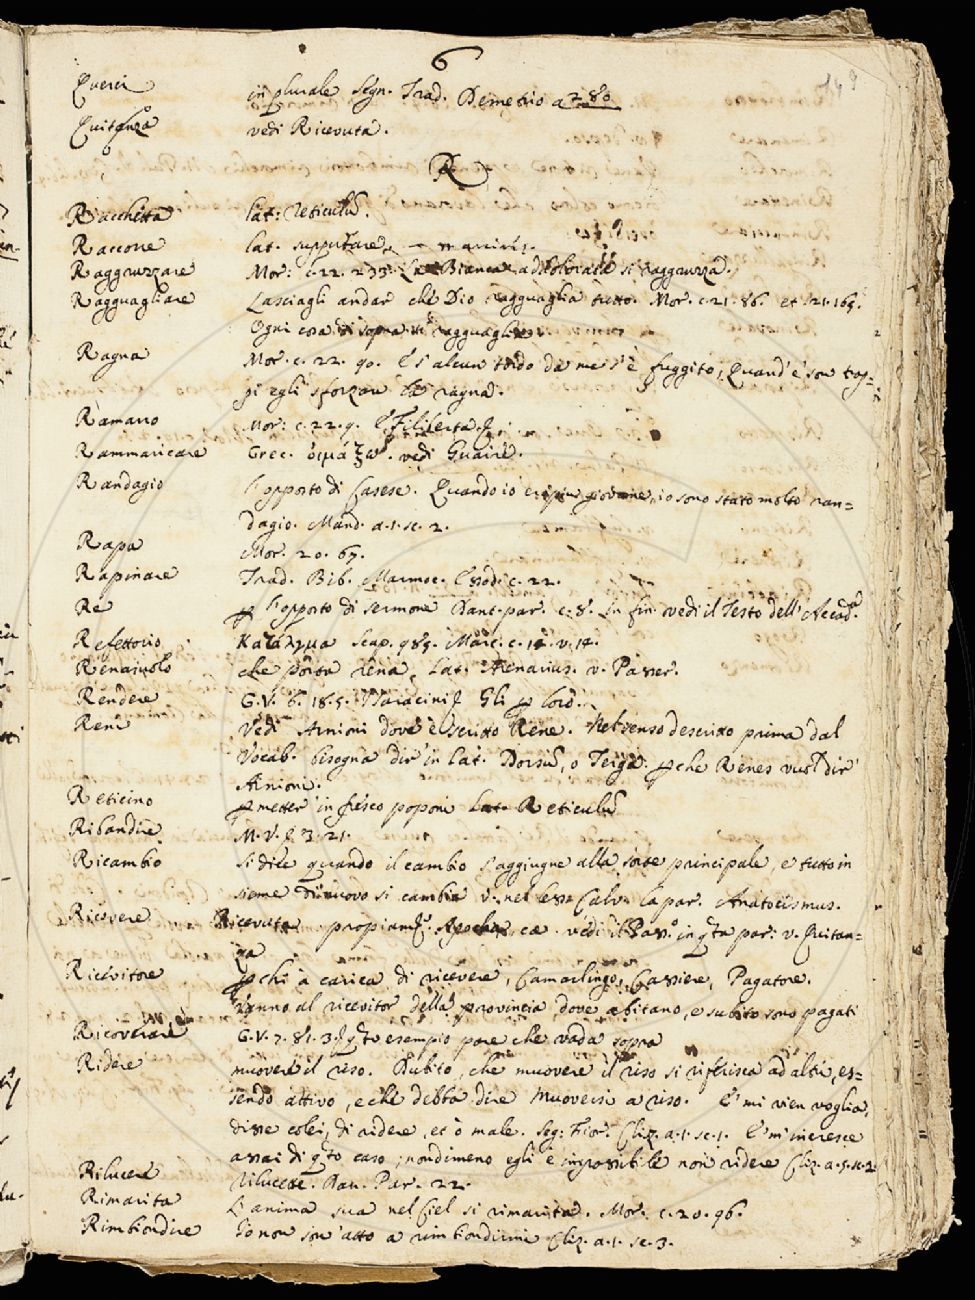 6
149
Querci in plurale Segn. Trad. Demetrio a 280
Quitanza vedi Ricevuta.
R
Racchetta lat: reticulũ.
Raccorre lat. supputare
Raggruzzare Mor: c. 22. La Bianca addolorata si raggruzza.
Ragguagliare Lasciagli andar chè Dio ragguaglia tutto. Mor. c. 21. 86. et 21. 169.
Ogni cosa di sopra si ragguaglia
Ragna Mor. c. 22. 90. E s'alcun tordo da me s'è fuggito, Quand'e' son trop=
pi egli sforzan la ragna.
Ramarro Mor: c. 22. 9. E Filiberta
Rammaricare Grec. οιμάζω. vedi Guaire.
Randagio l'opposto di Casese. Quando io ero più giovane, io sono stato molto ran=
dagio. Mand. a. 1. sc. 2.
Rapa Mor. 20. 67.
Rapinare Trad. Bib. Marmoc. Esod. c. 22.
Re p l'opposto di sermone Dant. par. c. 8. in fin. vedi il Testo dell'Accad.ª
Refettorio Κατάλυμα Scap. 985. Marc. c. 14. v. 14.
Renaiuolo che porta rena, Lat. Arenarius. v. Passer.
Rendere G. V. 6. 18. 5. Gli p lord.
Reni Vedi Arnioni dove è scritto Rene. Nel senso descritto prima dal
Vocab. bisogna dir in lat. Dorsũ, o Terga. pche Renes vuol dir
Arnioni.
Reticino p metter in fresco poponi Lat. Reticulũ
Ribandire M. V. 3. 21.
Ricambio si dice quando il cambio s'aggiugne alla sorte principale, e tutto in
sieme di nuovo si cambia v. nel less. Calv. la par. Anatocismus.
Ricevere Ricevuta propiam.ᵉ Apocha vedi il Pass. in q̃ta par: v. Quitan=
za
Ricevitore p chi à carica di ricevere, Camarlingo, Cassiere, Pagatore.
Vanno al ricevitor della provincia dove abitano, e subito sono pagati
Ricoverare G. V. 7. 81. 3. q̃to esempio pare che vada sopra
Ridere muovere il riso. Dubito, che muovere il riso si riferisca ad altri, es=
sendo attivo, e che debba dire muoversi a riso. E' mi vien voglia,
disse colei, di ridere, et ò male. Seg: Fior. Cliz. a. 1. sc. 1. E' m'incresce
assai di q̃to caso; nondimeno egli è impossibile non ridere Cliz. a. 5. sc. 2.
Rilucere rilucere. Dan. Par. 22.
Rimarita L'anima sua nel Ciel si rimarita. Mor. c. 20. 96.
Rimbiondire Io non son atto a rimbiondirmi Cliz. a. 1. sc. 3.